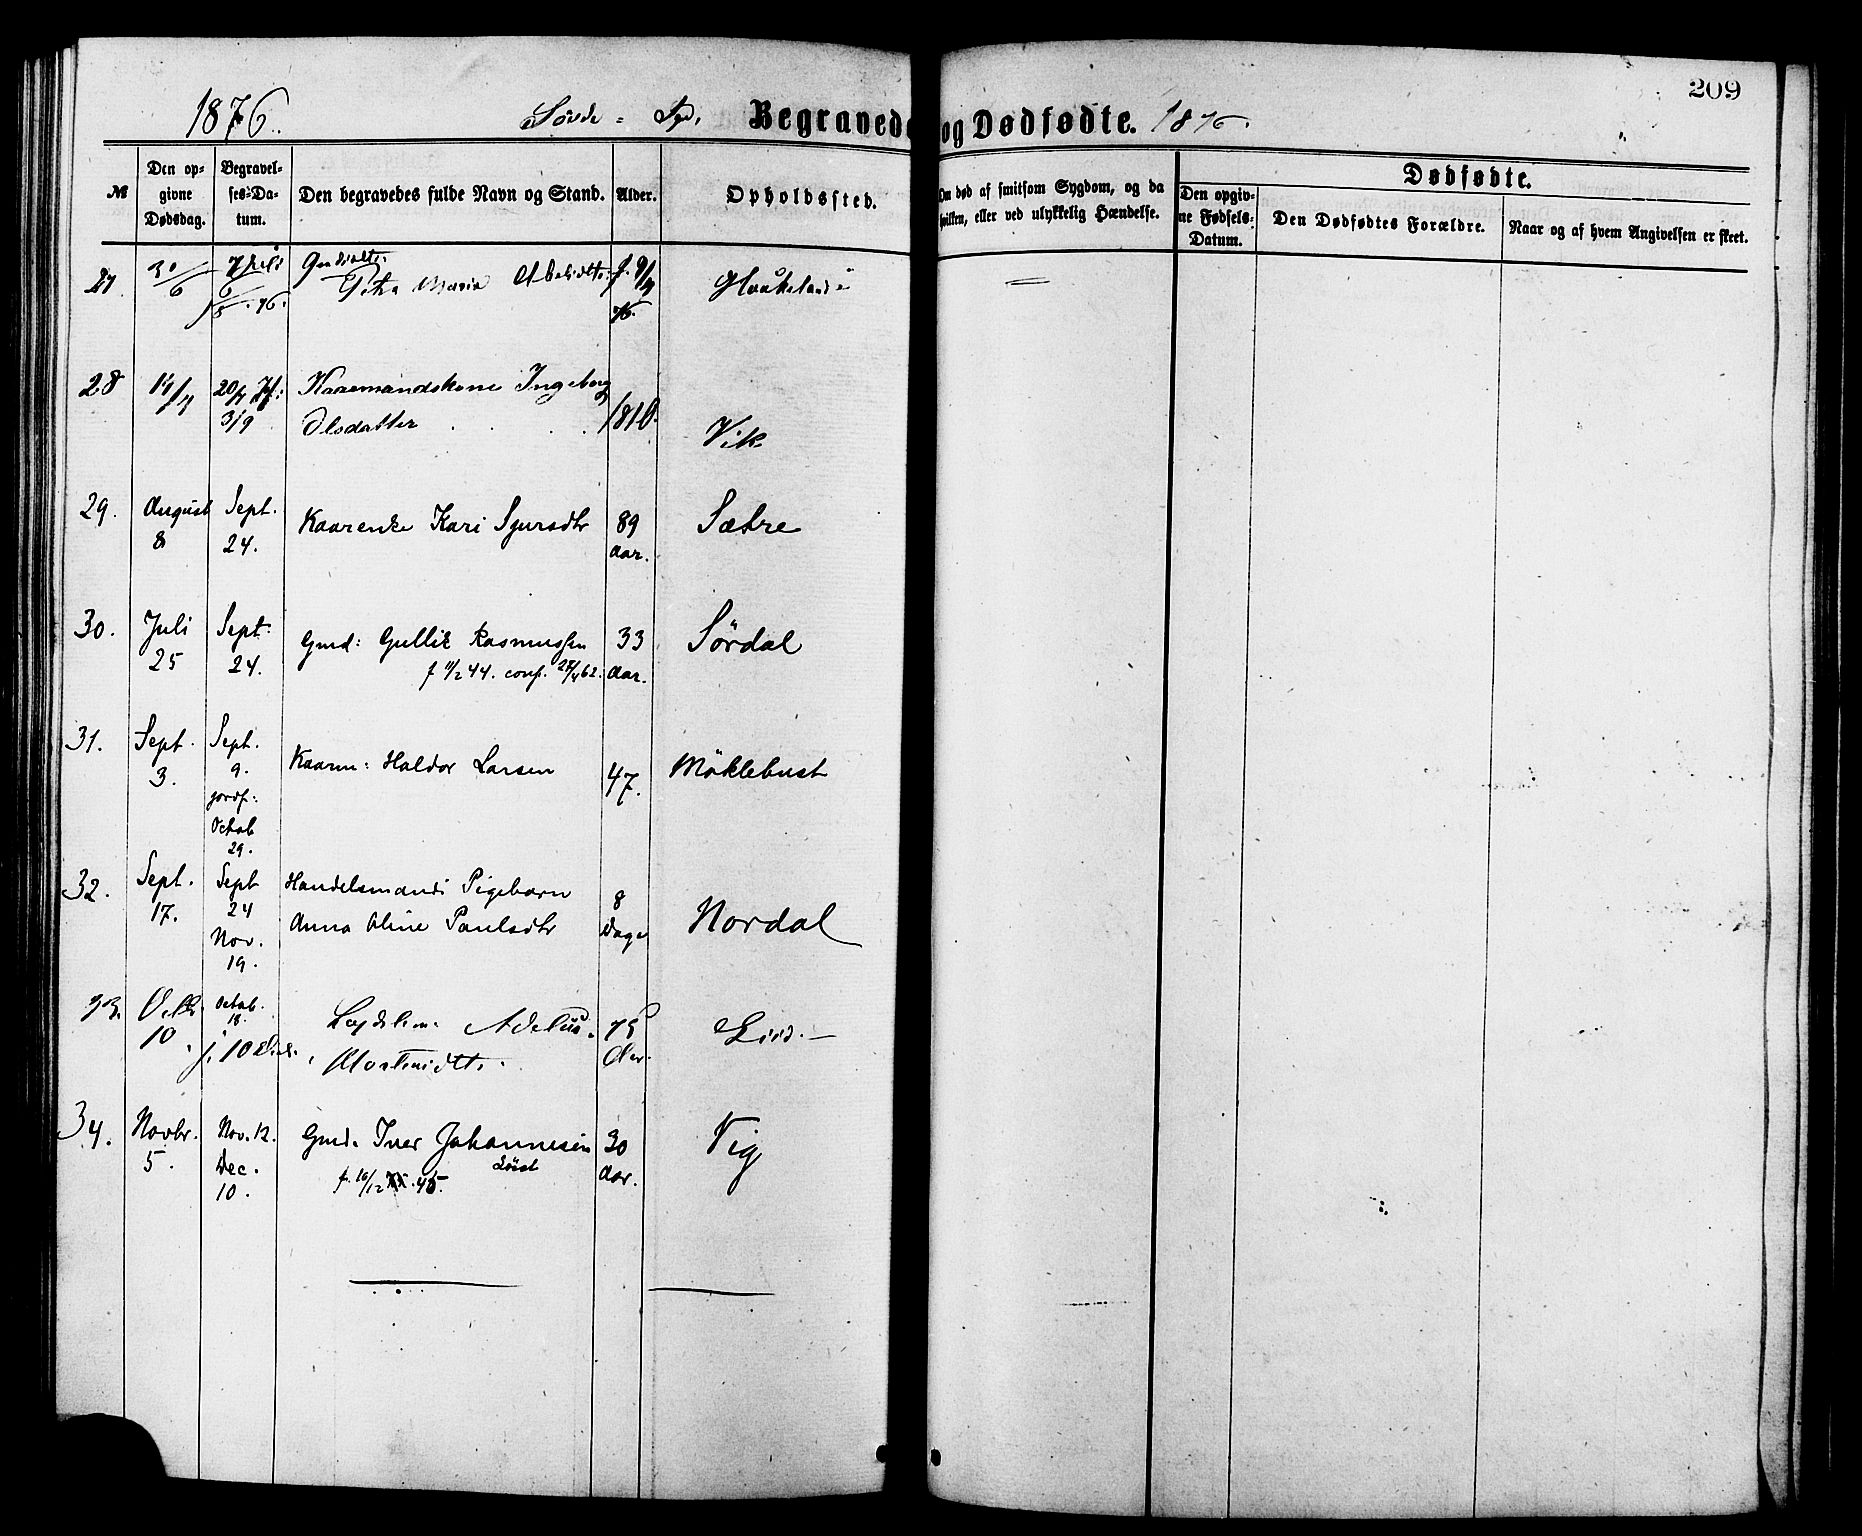 209
1876. Sövde - Begravede og Dødfødte. 1876.
№
Den opgivne Dødsdag.
Begravelses-Datum.
Den begravedes fulde Navn og Stand.
Alder.
Opholdssted.
Om død af smitsom Sygdom, og da hvilken, eller ved ulykkelig Hændelse.
Dødfødte.
Den opgivne Fødsels-Datum.
Den Dødfødtes Forældre.
Naar og af hvem Angivelsen er skeet.
27 30/6 Petra Maria f. 9/4
76.
28 17/7 20/7 Jf: Kaaremandskone Ingeborg
3/9 Olsdatter 1810. Vik
29. August Sept. Kaarenke Kari Sjursdtr 89 Sætre
8 24. aar.
30. Juli Sept: Gmd: Gullik Rasmussen 33 Sördal
25 24. f 11/2 44. conf. 27/4 62. aar.
31. Sept. Sept. Kaarm: Haldor Larsen 47. Möklebust
3. 9.
jordf:
Octob
29.
32. Sept. Sept Handelsmands Pigebarn 8 Nordal
17. 24 Anna Oline Paulsdtr Dage
Nov.
19.
33. Octbr. Octob. 75
10 18. Aar.
j. 10 Dec.
34. Novbr. Nov. 12. Gmd. Iver Johannesen 30 Vig
5. Dec. aar.
10. f. 16/12 45.